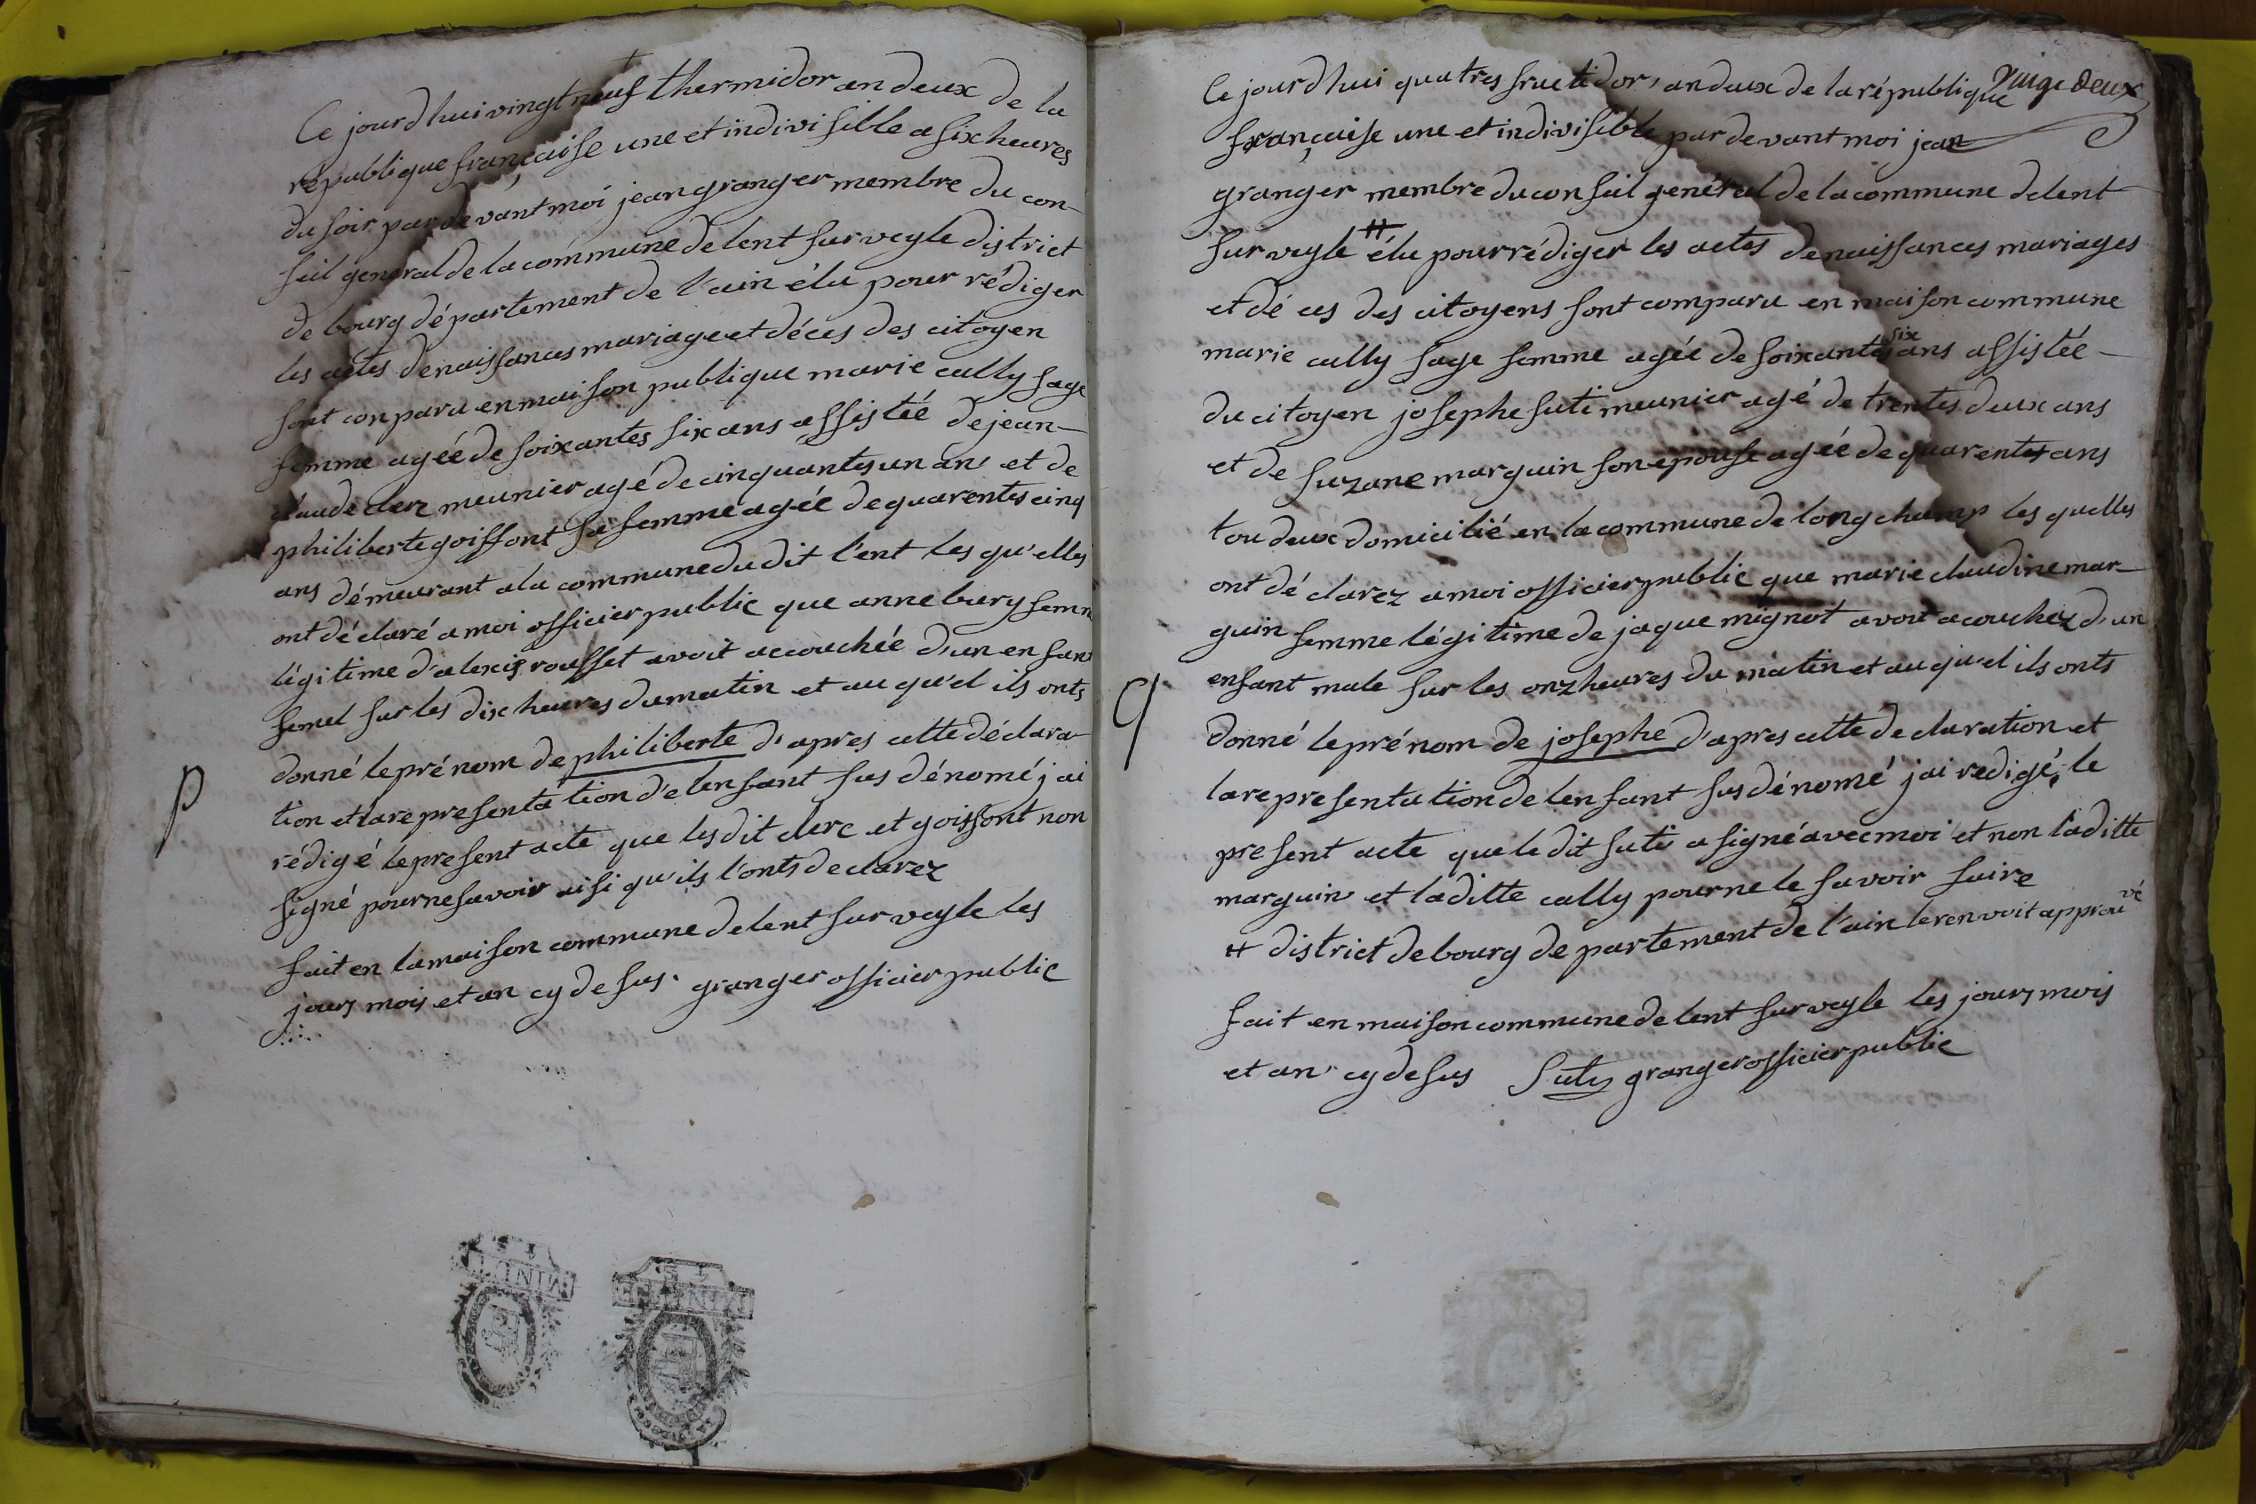 Ce jourd'hui vingt neuf thermidor an deux de la
république française une et indivisible a six heures
du soir par devant moi jean granger membre du con-
seil general de la commune de lent sur veyle district
de bourg département de l'ain élu pour rédiger
les actes de naissances mariage et déces des citoyen
sont conparu en maison publique marie cally sage
femme agéé de soixantes six ans assistéé de jean-
claude clerz meunier agé de cinquantes un ans et de
philiberte goissont sa femme agéé de quarentes cinq
ans démeurant a la commune du dit l'ent les qu'elles
ont déclaré a moi officier public que anne bury femm
légitime d'alexis rousset avoit accouchéé d'un enfant
femel sur les dix heures du matin et au qu'el ils onts
donné le prénom de philiberte d'apres cette déclara-
tion et la representation de lenfant sus dénomé j'ai
P
rédigé le present acte que les dit clerc et goissont non
signé pour ne savoir aisi qu'ils l'onts declarez
fait en la maison commune de lent sur veyle les
jours mois et an cy desus. granger officier public
vingt deux
Ce jourd'hui quatres fructidor, an deux de la république
française une et indivisible par devant moi jean
granger membre du conseil genéral de la commune de lent
sur veyle # élu pour rédiger les actes de naissances mariages
et dé ces des citoyens sont comparu en maison commune
marie cally sage femme agéé de soixantes six ans assistéé
du citoyen josephe suti meunier agé de trentes deux ans
et de suzane marguin son epouse agéé de quarentes ans
tou deux domicilié en la commune de longchamp les quelles
ont dé clarez a moi officier public que marie claudine mar-
guin femme légitime de jaque mignot avoit acouchez d'un
enfant male sur les onz heures du matin et au qu'el ils onts
q
donné le prénom de josephe d'apres cette declaration et
la representation de lenfant sus dénomé j'ai redigé, le
present acte que le dit suti a signé avec moi et non laditte
marguin et laditte cally pour ne le savoir faire
# district de bourg de partement de l'ain le renvoit approuvé
fait en maison commune de lent sur veyle les jours mois
et an cy desus Suty granger officier public